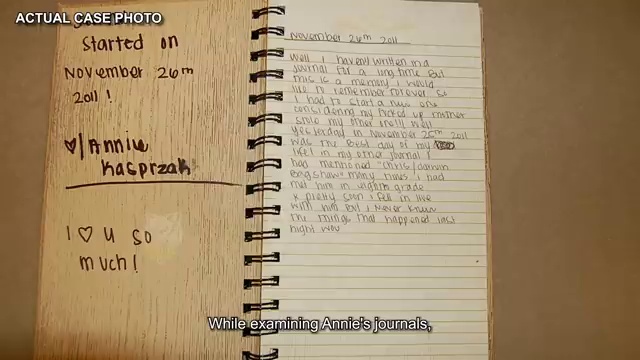 ACTUAL CASE PHOTO
Started on
November 26th
2011!
♡/Annie
Kasprzak
I ♡ u so
much!
November 26th 2011
Well I havent written in a
journal for a long time but
this is a memory I would
like to remember forever so
I had to start a new one
considering my fucked up mother
stole my other one!!! Well
yesterday in November 25th 2011
was the best day of my
like! in my other journal I
had mentioned "Chris/
Bagshaw" many times I had
met him in eighth grade
& pretty soon I fell in love
with him but I never knew
the things that happened last
night wou
While examining Annie's journals,